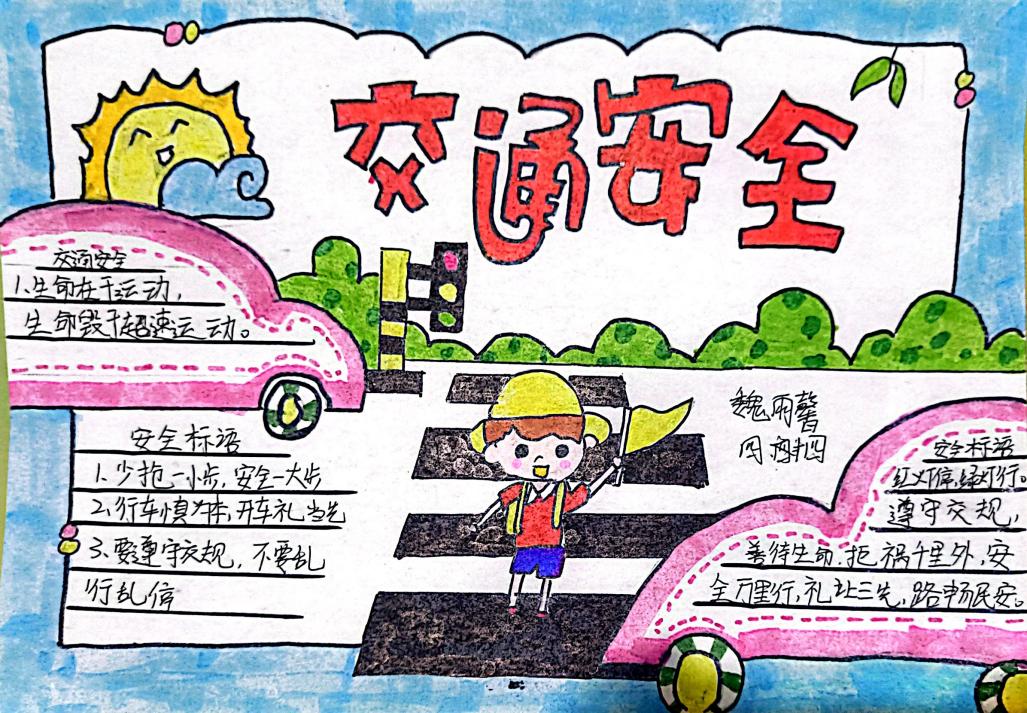 交通安全
交通安全
1.生命在于运动，
生命毁于超速运动。
魏雨馨
安全标语
1.少抢一小步，安全一大步
2.行车慎为本，开车礼当先
3.要遵守交规，不要乱
行乱停
安全标语
红灯停，绿灯行。
遵守交规，
善待生命.拒祸千里外，安
全万里行，礼让三先，路畅民安。